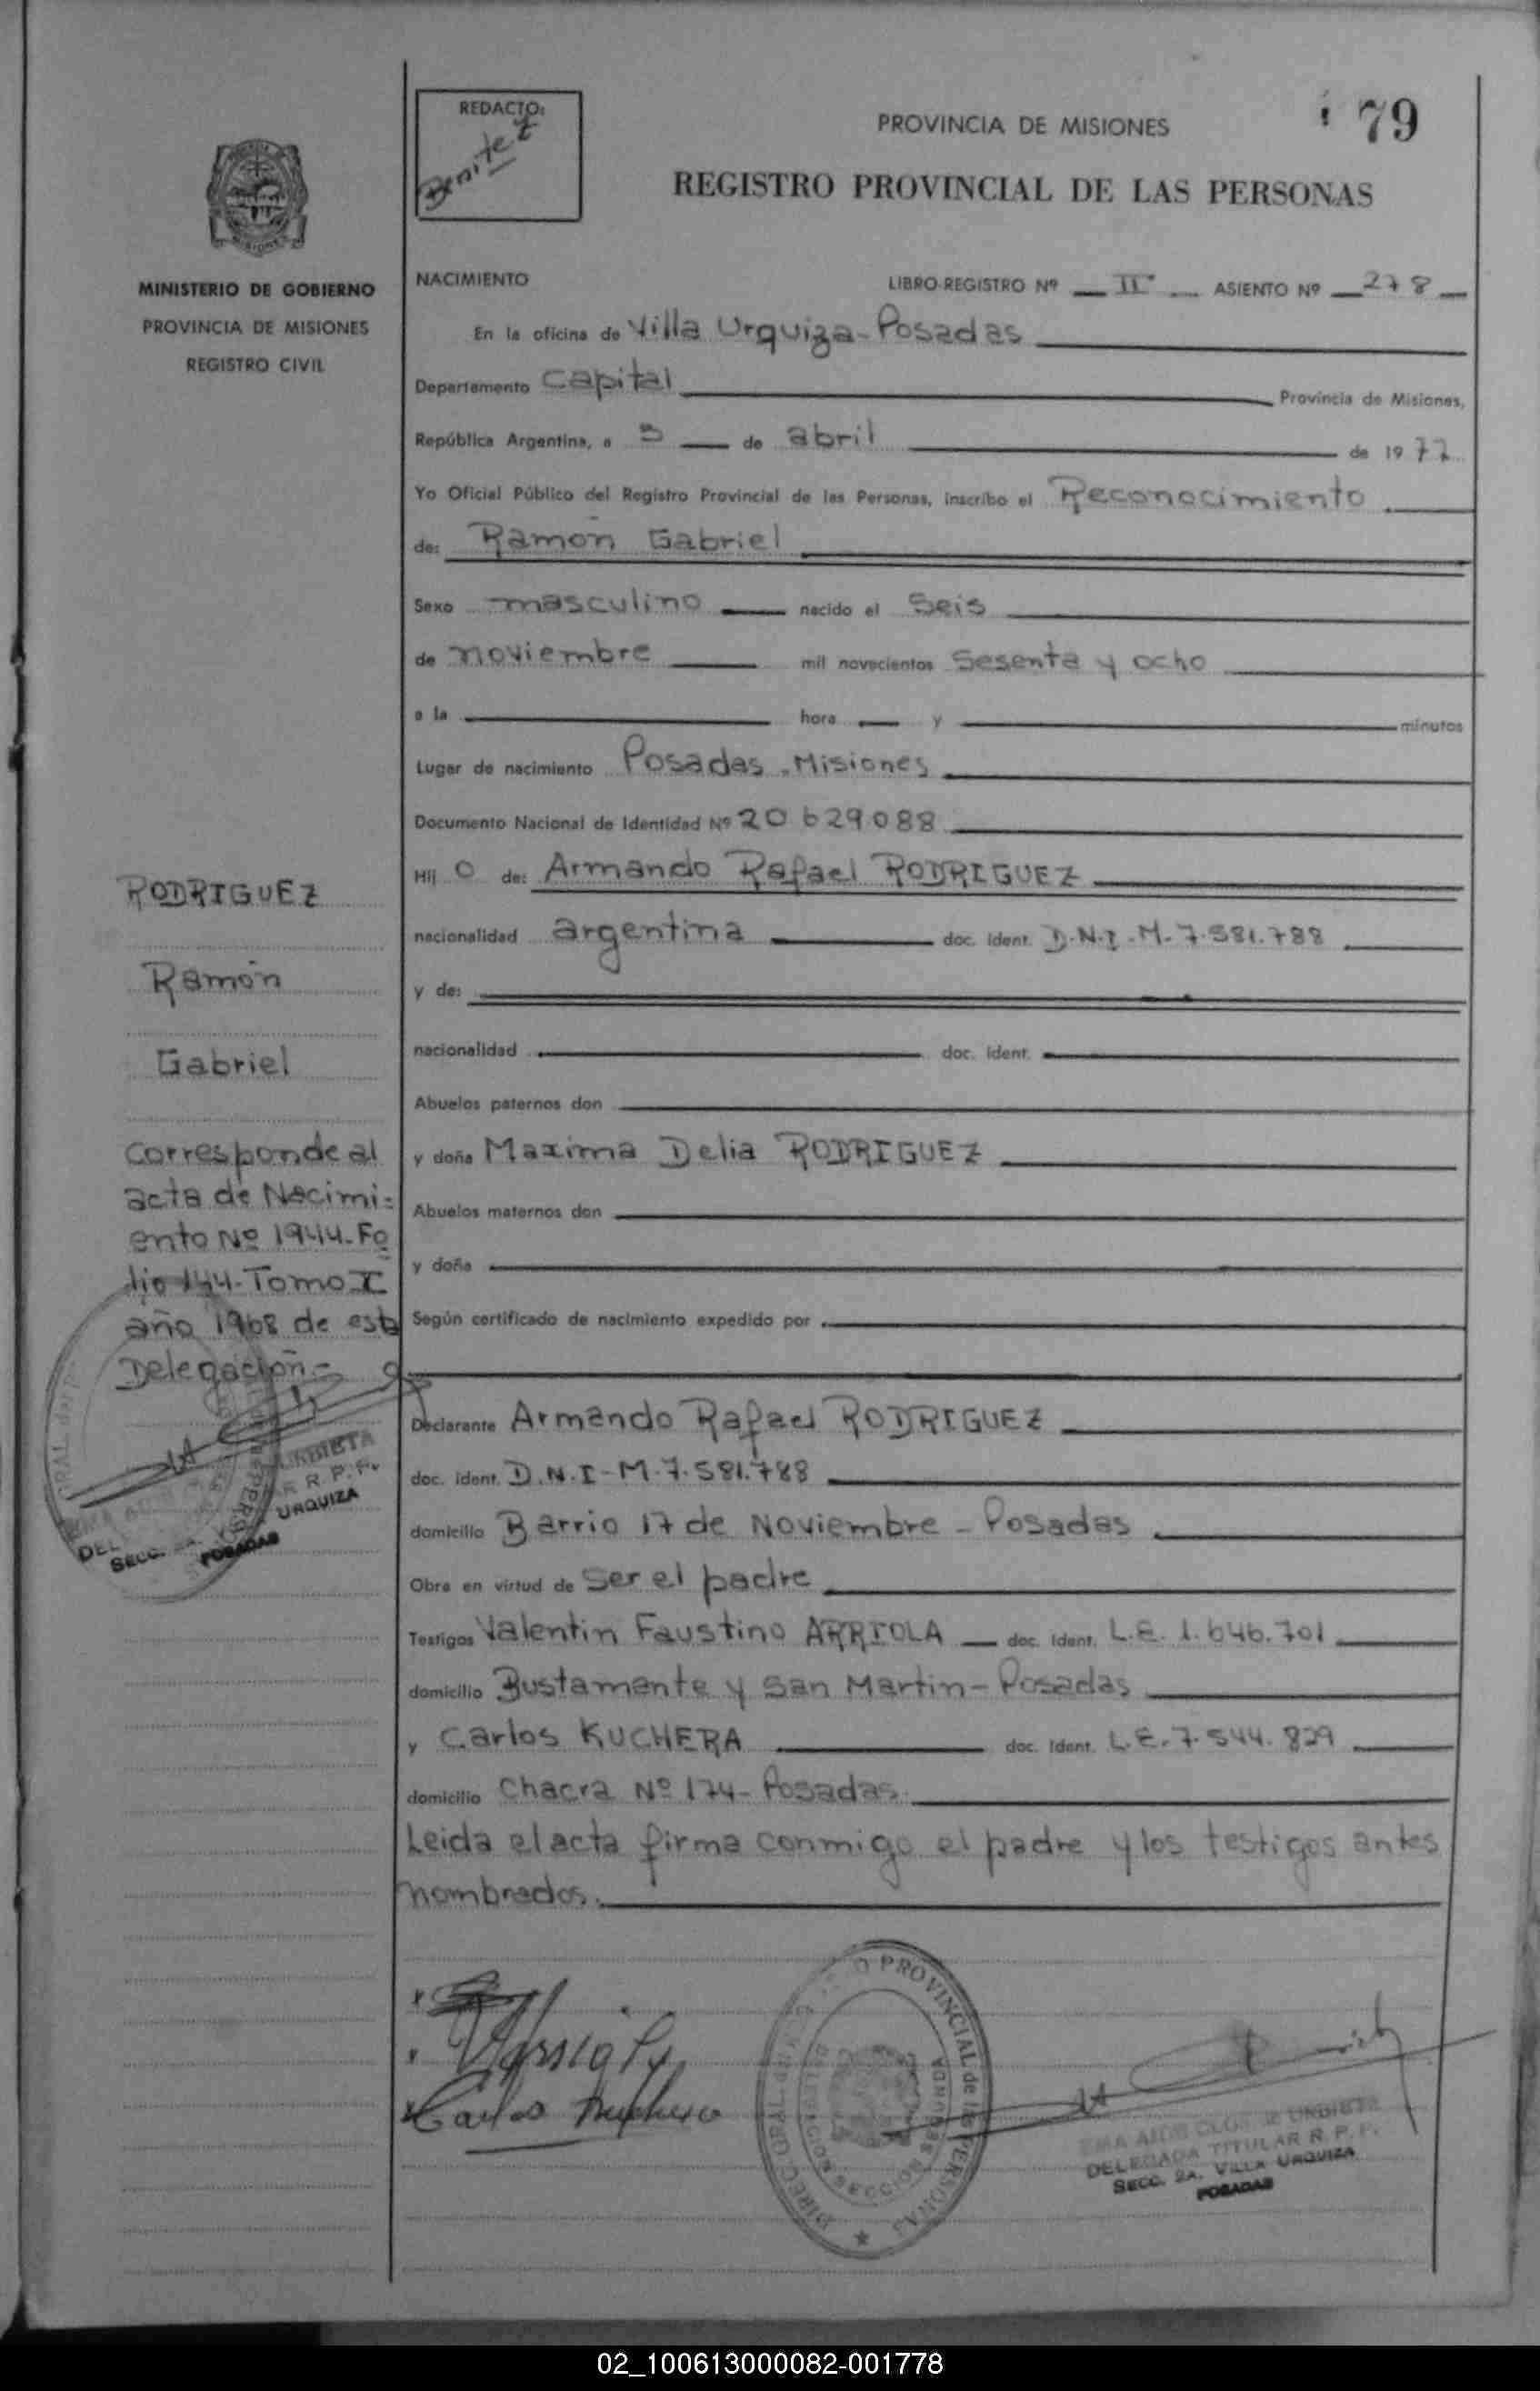 REDACTO:
Benitez
PROVINCIA DE MISIONES
79
REGISTRO PROVINCIAL DE LAS PERSONAS
MINISTERIO DE GOBIERNO
PROVINCIA DE MISIONES
REGISTRO CIVIL
NACIMIENTO LIBRO-REGISTRO Nº II ASIENTO Nº 278
En la oficina de Villa Urquiza-Posadas
Departamento Capital Provincia de Misiones,
República Argentina, a 5 de abril de 1977
Yo Oficial Público del Registro Provincial de las Personas, inscribo el Reconocimiento
de: Ramón Gabriel
Sexo masculino nacido el Seis
de noviembre mil novecientos Sesenta y ocho
a la hora y minutos
Lugar de nacimiento Posadas-Misiones
Documento Nacional de Identidad Nº 20629088
Hij o de: Armando Rafael RODRIGUEZ
nacionalidad argentina doc. ident. D.N.I-M-7.581.788
y de:
nacionalidad doc. ident.
Abuelos paternos don
y doña Maxima Delia RODRIGUEZ
Abuelos maternos don
y doña
Según certificado de nacimiento expedido por
Declarante Armando Rafael RODRIGUEZ
doc. ident. D.N.I-M-7.581.788
domicilio Barrio 17 de Noviembre - Posadas
Obra en virtud de Ser el padre
Testigos Valentin Faustino ARRIOLA doc. ident. L.E. 1.646.701
domicilio Bustamante y San Martin-Posadas
y Carlos KUCHERA doc. ident. L.E.-7.544.829
domicilio Chacra Nº 174-Posadas.
Leida el acta firma conmigo el padre y los testigos antes
nombrados.
RODRIGUEZ
Ramón
Gabriel
Corresponde al
acta de Nacimi=
ento Nº 1944-Fo
lio 144-Tomo X
año 1968 de esta
Delegación=
R. P. P.
URQUIZA
SECC. 2A.
POSADAS
PROVINCIAL de las PERSONAS
DELEGACION SECCION SEGUNDA
DELEGADA TITULAR R. P. P.
SECC. 2A. VILLA URQUIZA
POSADAS
02_100613000082-001778